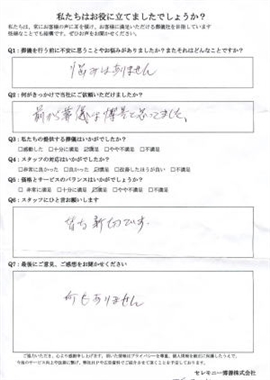 私たちはお役に立てましたでしょうか？
私たちは、常にお客様の声に耳を傾け、お客様に満足していただける葬儀社を目指しています
些細なことでも結構です。ぜひお声をお聞かせください。
Q1：葬儀を行う前に不安に思うことやお悩みがありましたか？またそれはどんなことですか？
悩みはありません
Q2：何がきっかけで当社にご依頼いただけましたか？
前から葬儀は博善と思ってました。
Q3：私たちの提供する葬儀はいかがでしたか？
□感動した □十分に満足 ☑満足 □やや不満足 □不満足
Q4：スタッフの対応はいかがでしたか？
□非常に良かった □良かった ☑普通 □改善したほうが良い □不満足
Q5：価格とサービスのバランスはいかがでしたか？
□非常に満足 □十分に満足 ☑満足 □やや不満足 □不満足
Q6：スタッフにひと言お願いします
皆も親切です。
Q7：最後にご意見、ご感想をお聞かせください
何もありません
セレモニー博善株式会社